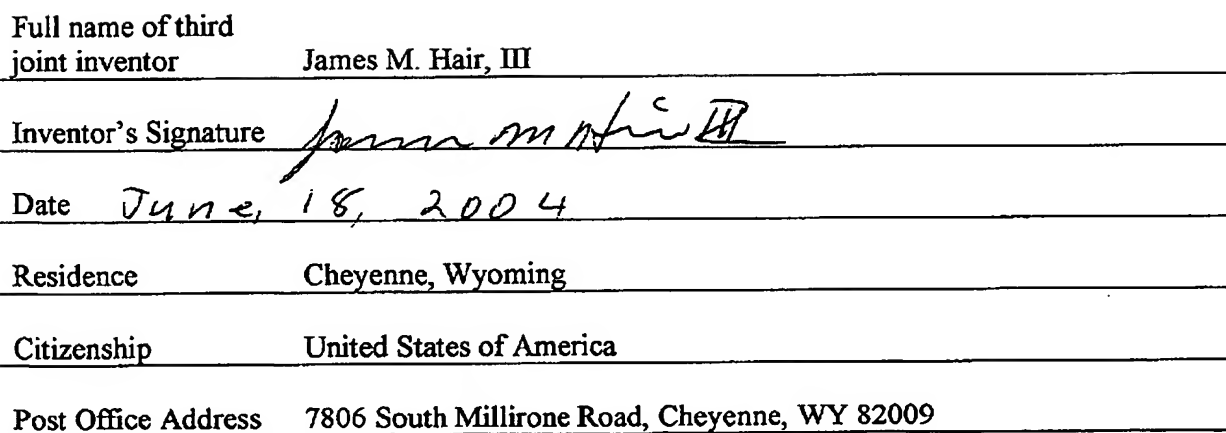 Full name of third
joint inventor James M. Hair, III
Inventor's Signature James M Hair III
Date June, 18, 2004
Residence Cheyenne, Wyoming
Citizenship United States of America
Post Office Address 7806 South Millirone Road, Cheyenne, WY 82009